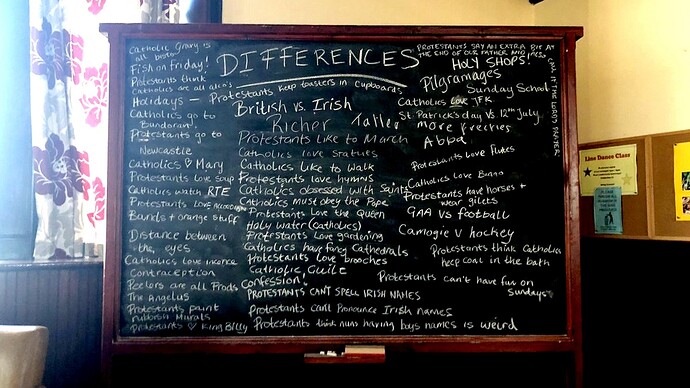 DIFFERENCES
Catholic Gravy is
all bisto
Fish on Friday!
Protestants think
Catholics are all
Holidays -
Catholics go to
Bundoran
Protestants go to
Newcastle
Catholics ♡ Mary
Protestants love soup
Catholics watch RTE
Protestants LOVE ACCORDION
Bands + orange stuff
Distance between
the eyes
Catholics love incence
Contraception
Peelers are all Prods
The Angelus
Protestants paint
rubbish Murals
Protestants ♡ King Billy
Protestants keep toasters in Cupboards
British vs. Irish
Richer
Taller
Protestants like to March
Catholics love statues
Catholics like to walk
Protestants love hymns
Catholics obsessed with Saints
Catholics must obey the Pope
Protestants Love the Queen
Holy water (Catholics)
Protestants Love gardening
Catholics have fancy Cathedrals
Protestants love brooches
Catholic Guilt
Confession!
PROTESTANTS CAN'T SPELL IRISH NAMES
Protestants can't Pronounce Irish names
Protestants think nuns having boys names is weird
PROTESTANTS SAY AN EXTRA BIT AT
THE END OF OUR FATHER AND
CALL IT THE LORD'S PRAYER
HOLY SHOPS!
Pilgramages
Sunday School
Catholics LOVE JFK
St. Patrick's day VS 12th July
more freckles
Abba
Protestants Love Flutes
Catholics Love Bingo
Protestants have horses +
wear gilets
GAA VS football
Camogie V hockey
Protestants think Catholics
keep coal in the bath
Protestants can't have fun on
Sundays
Line Dance Class